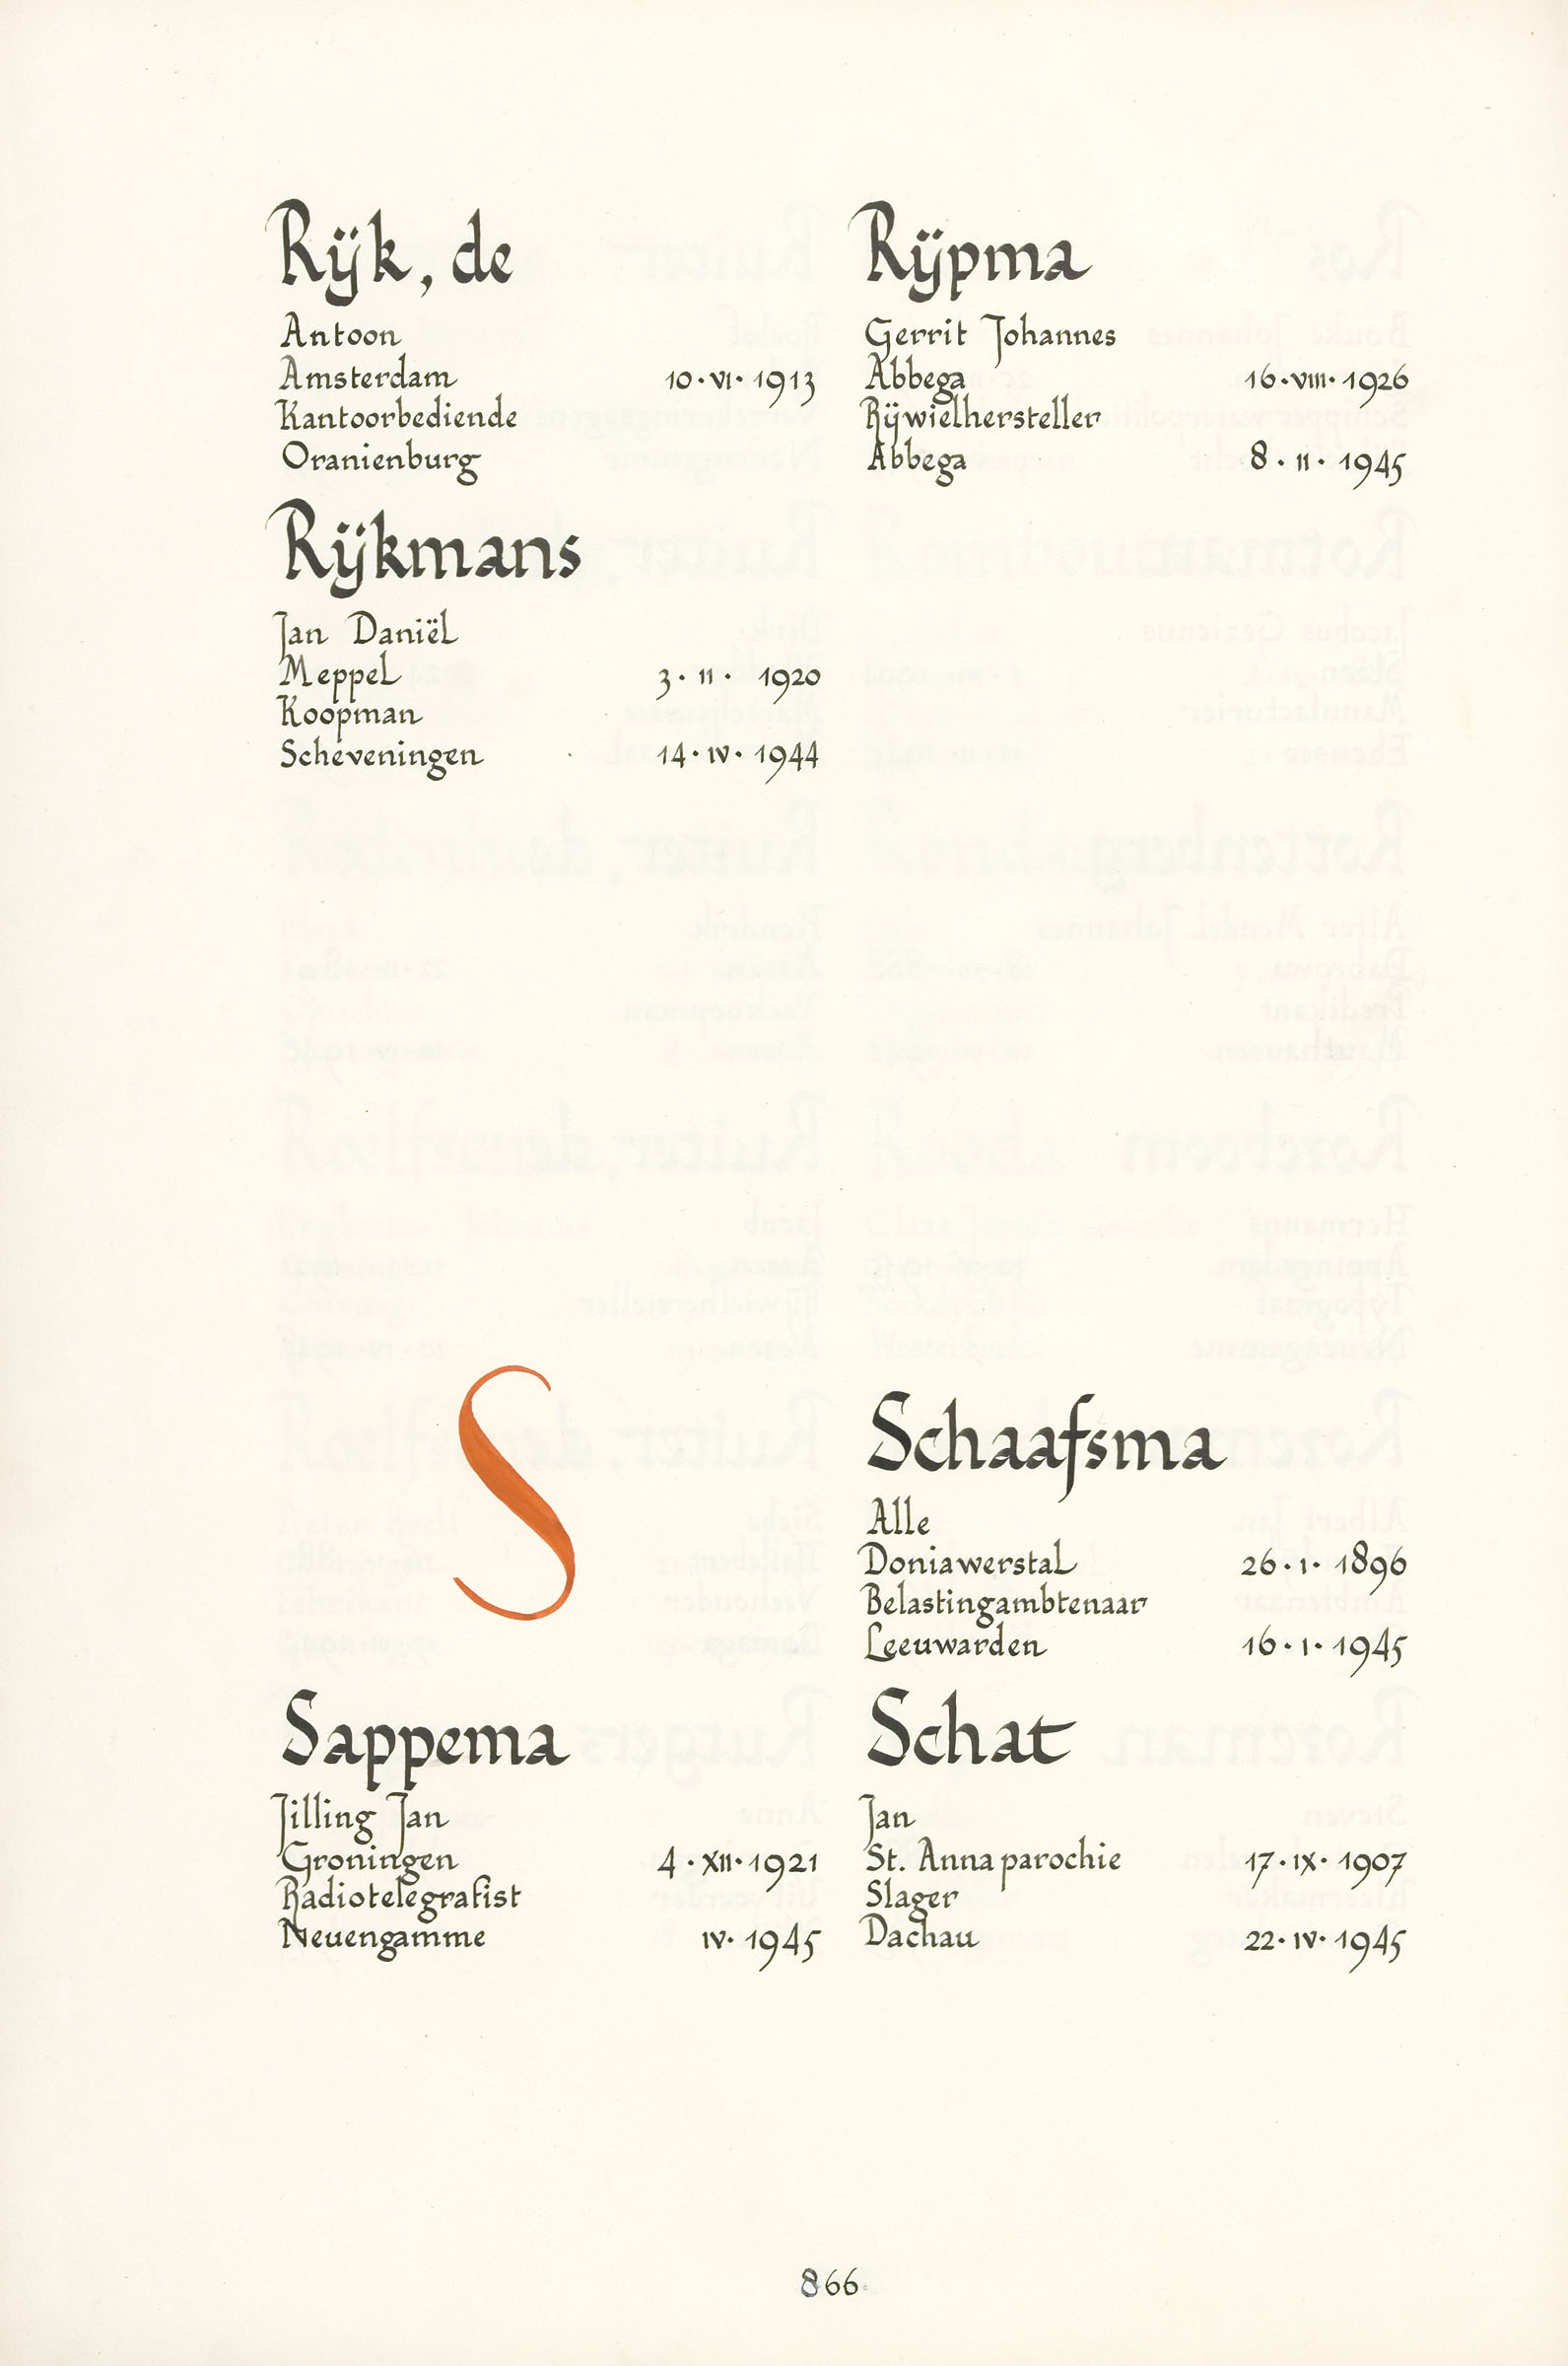 Rijk, de
Antoon
Amsterdam 10·VI·1913
Kantoorbediende
Oranienburg
Rijkmans
Jan Daniël
Meppel 3·II· 1920
Koopman
Scheveningen 14·IV·1944
Rijpma
Gerrit Johannes
Abbega 16·VIII·1926
Rijwielhersteller
Abbega 8·II·1945
S
Sappema
Jilling Jan
Groningen 4·XII·1921
Radiotelegrafist
Neuengamme IV·1945
Schaafsma
Alle
Doniawerstal 26·I·1896
Belastingambtenaar
Leeuwarden 16·I·1945
Schat
Jan
St. Annaparochie 17·IX·1907
Slager
Dachau 22·IV·1945
866